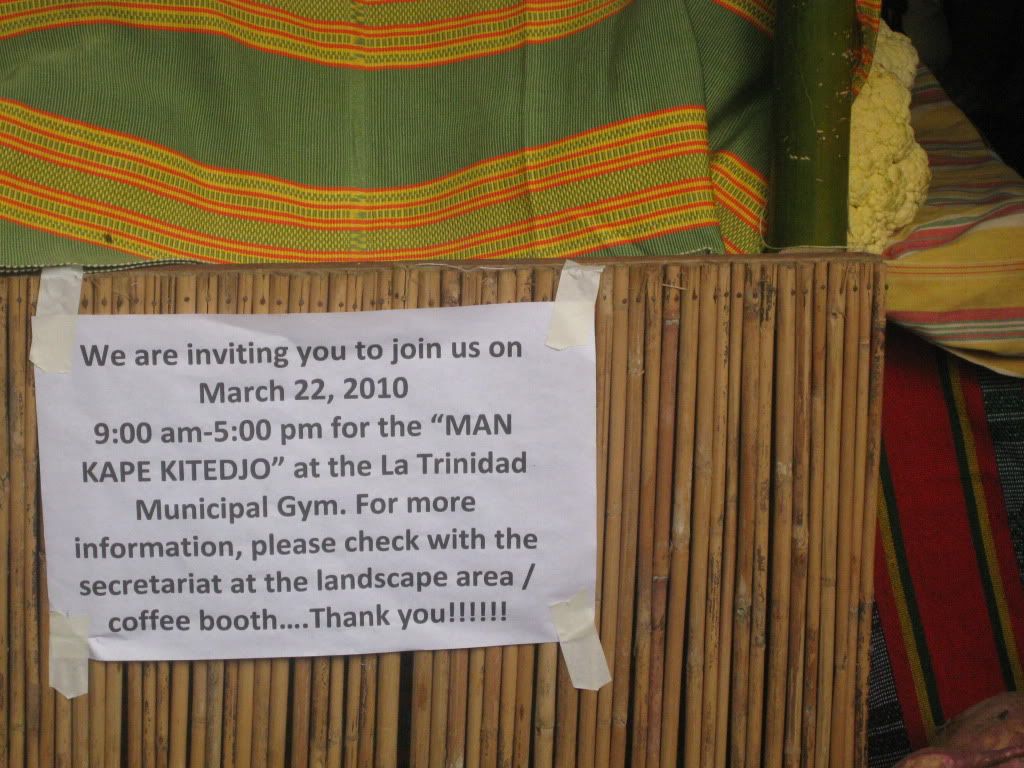 We are inviting you to join us on
March 22, 2010
9:00 am-5:00 pm for the “MAN
KAPE KITEDJO” at the La Trinidad
Municipal Gym. For more
information, please check with the
secretariat at the landscape area /
coffee booth….Thank you!!!!!!